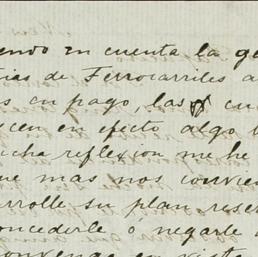 endo en cuenta la ge
ias de Ferrocarriles a
s en pago, las cu
cen en efecto algo
ucha reflexion me he
ue mas nos convie
arrolle su plan reser
concederle ó negarle
convenga en vista